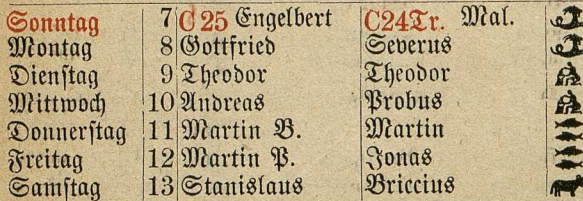 Sonntag 7 C 25 Engelbert C24Tr. Mal.
Montag 8 Gottfried Severus
Dienstag 9 Theodor Theodor
Mittwoch 10 Andreas Probus
Donnerstag 11 Martin B. Martin
Freitag 12 Martin P. Jonas
Samstag 13 Stanislaus Briccius